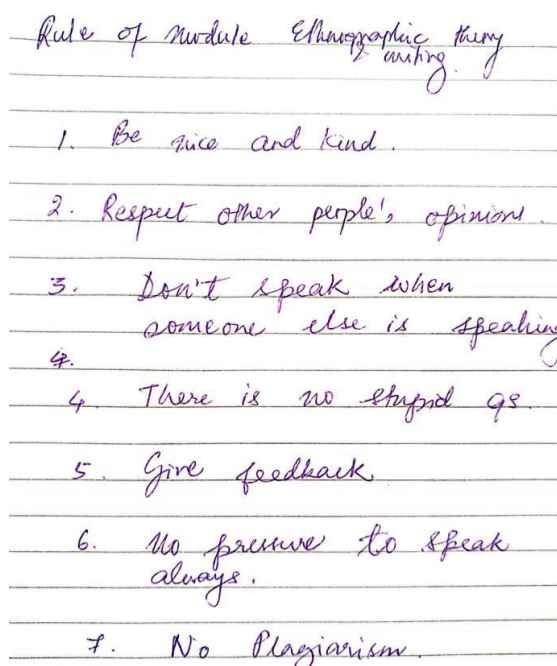 Rule of Module Ethnographic theory
& writing.
1. Be nice and kind.
2. Respect other people's opinions.
3. Don't speak when
someone else is speaking
4.
4. There is no stupid qs.
5. Give feedback
6. No pressure to speak
always.
7. No Plagiarism.